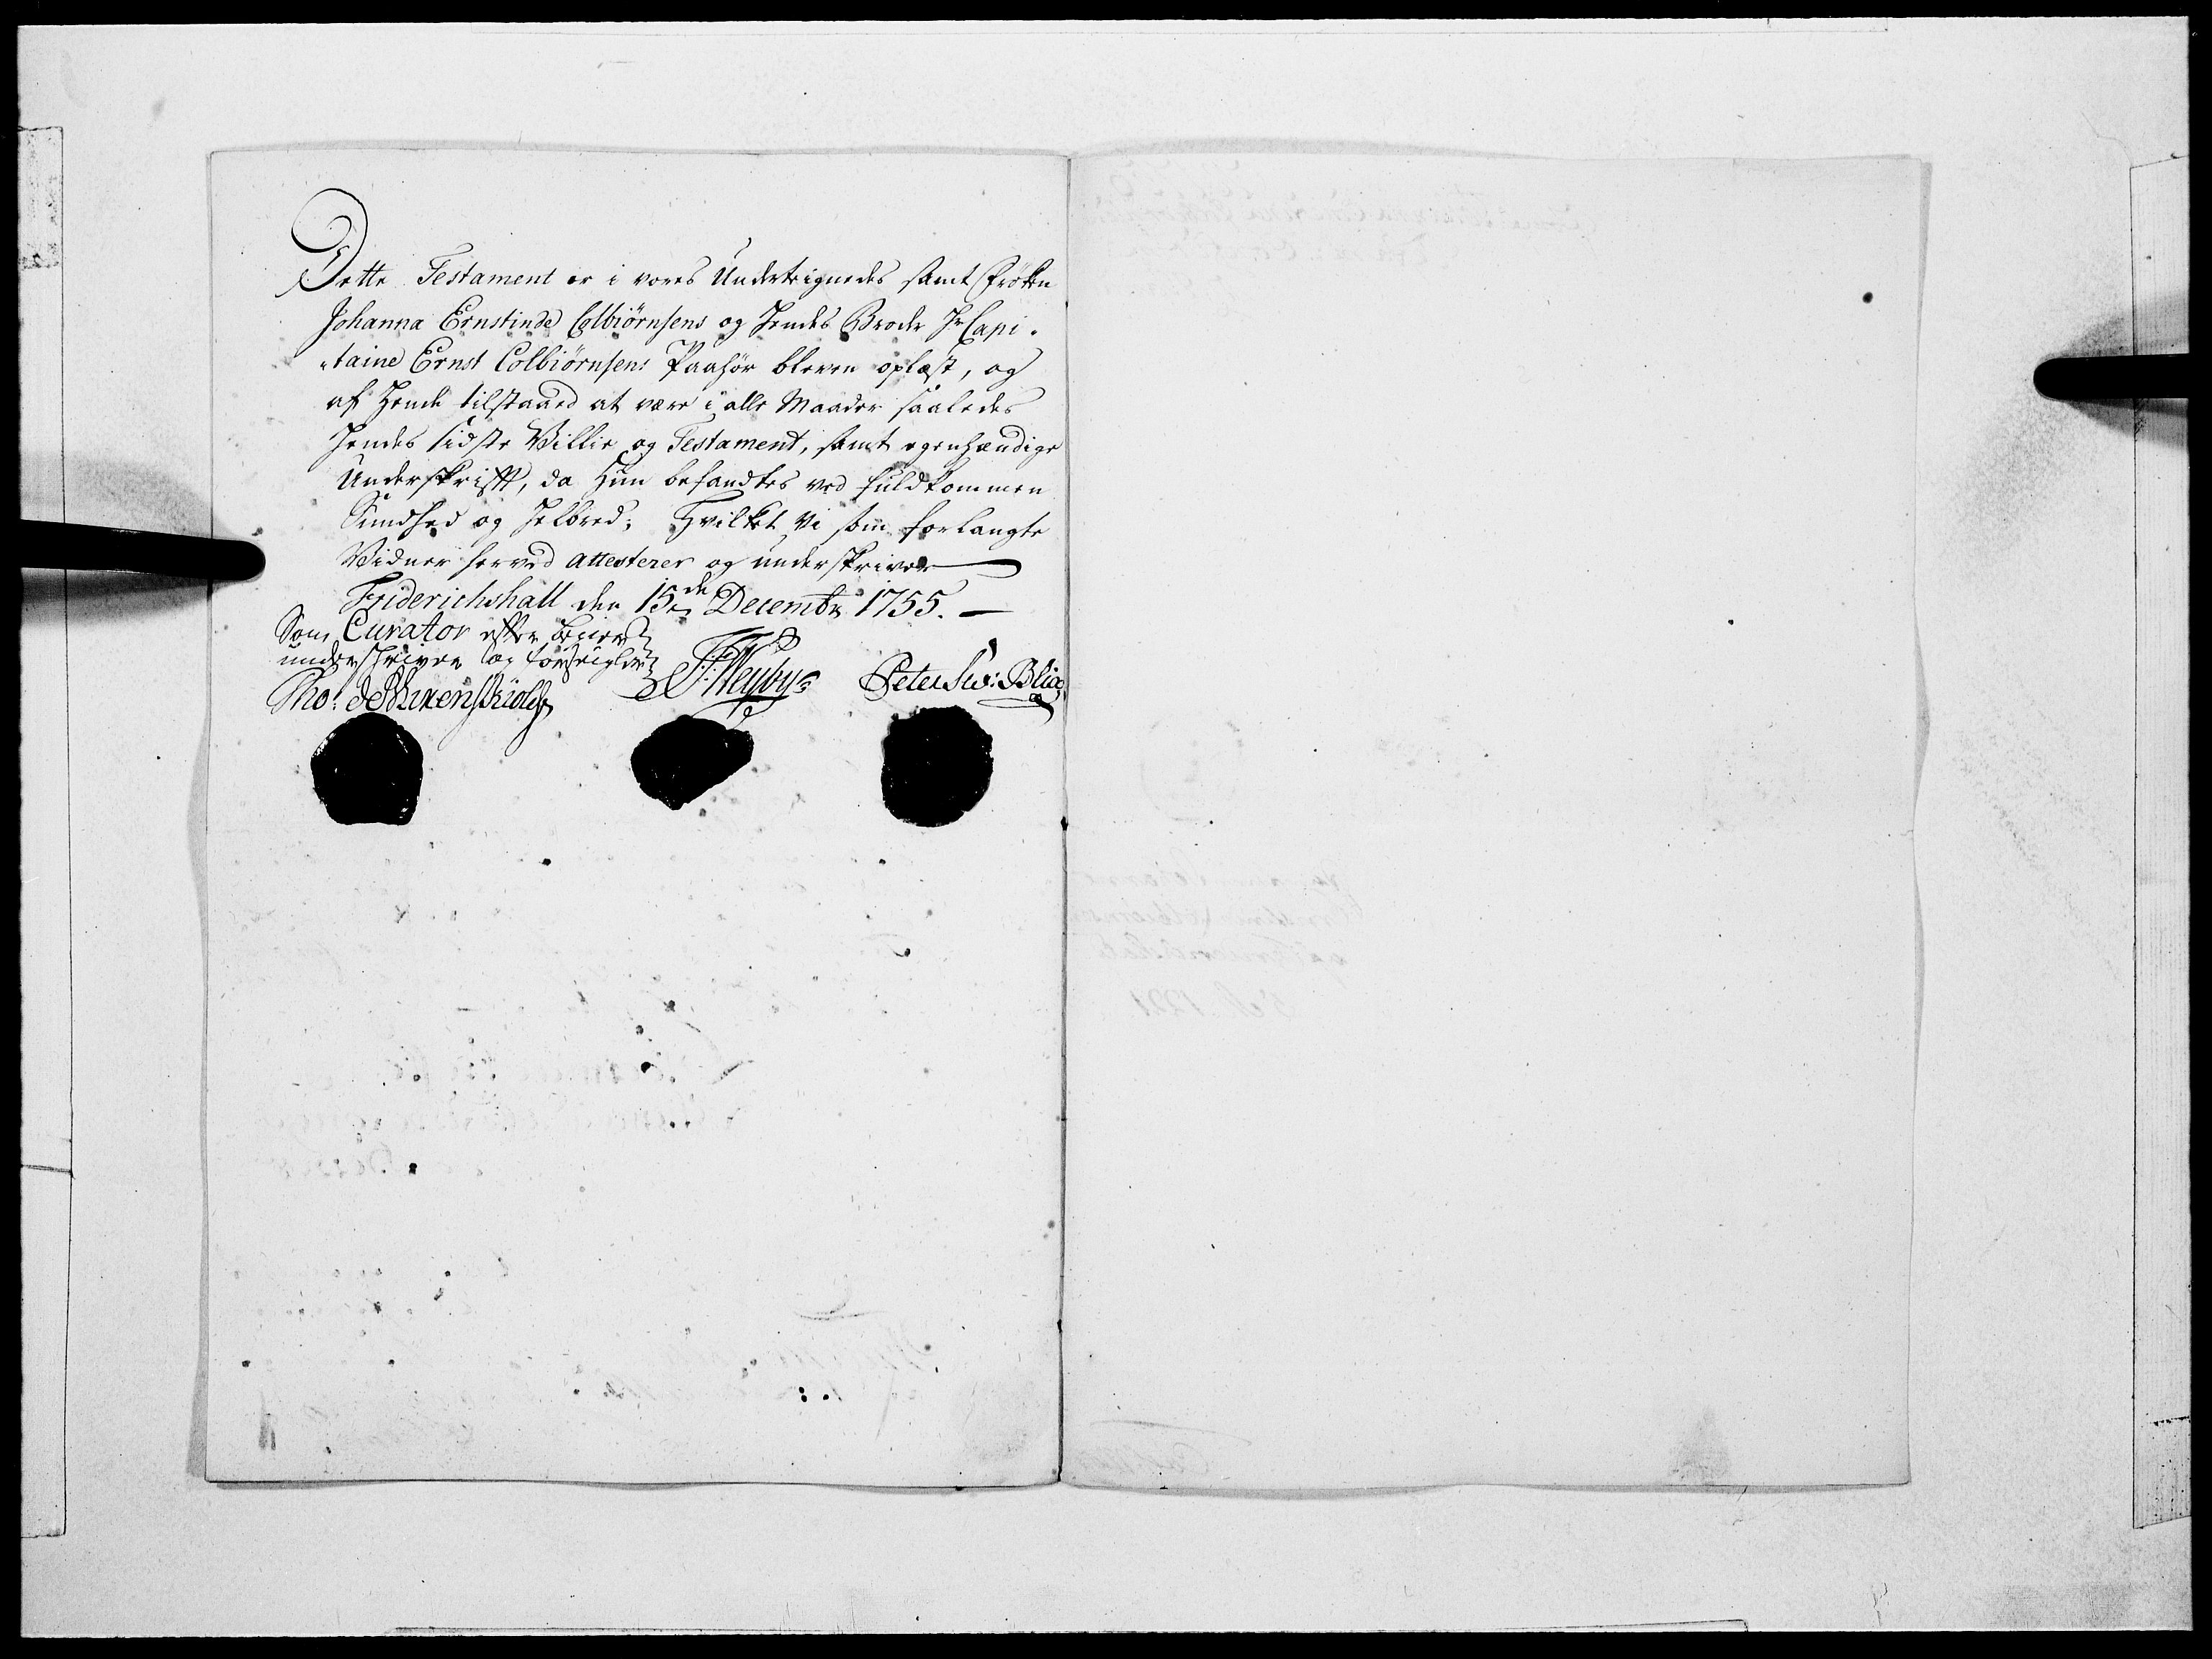 Dette Testament er i vores Undertegnedes samt Frøken
Johanna Ernstinde Colbiørnsens og Hendes Broder Hr Capi-
-taine Ernst Colbiørnsens Paahør bleven oplæst, og
af Hende tilstaaed at være i alle Maader saaledes
Hendes sidste Villie og Testament, samt egenhændige
Underskrifft, da Hun befandtes ved fuldkommen
Sundhed og Helbred; Hvilket Vi som forlangte
Vidner herved attesterer og underskriver
Friderichshall den 15de Decembr 1755.
Som Curator efter begier
underskriver og forseigler
Tho: de
P: Weyby
Peter Sev: Blix